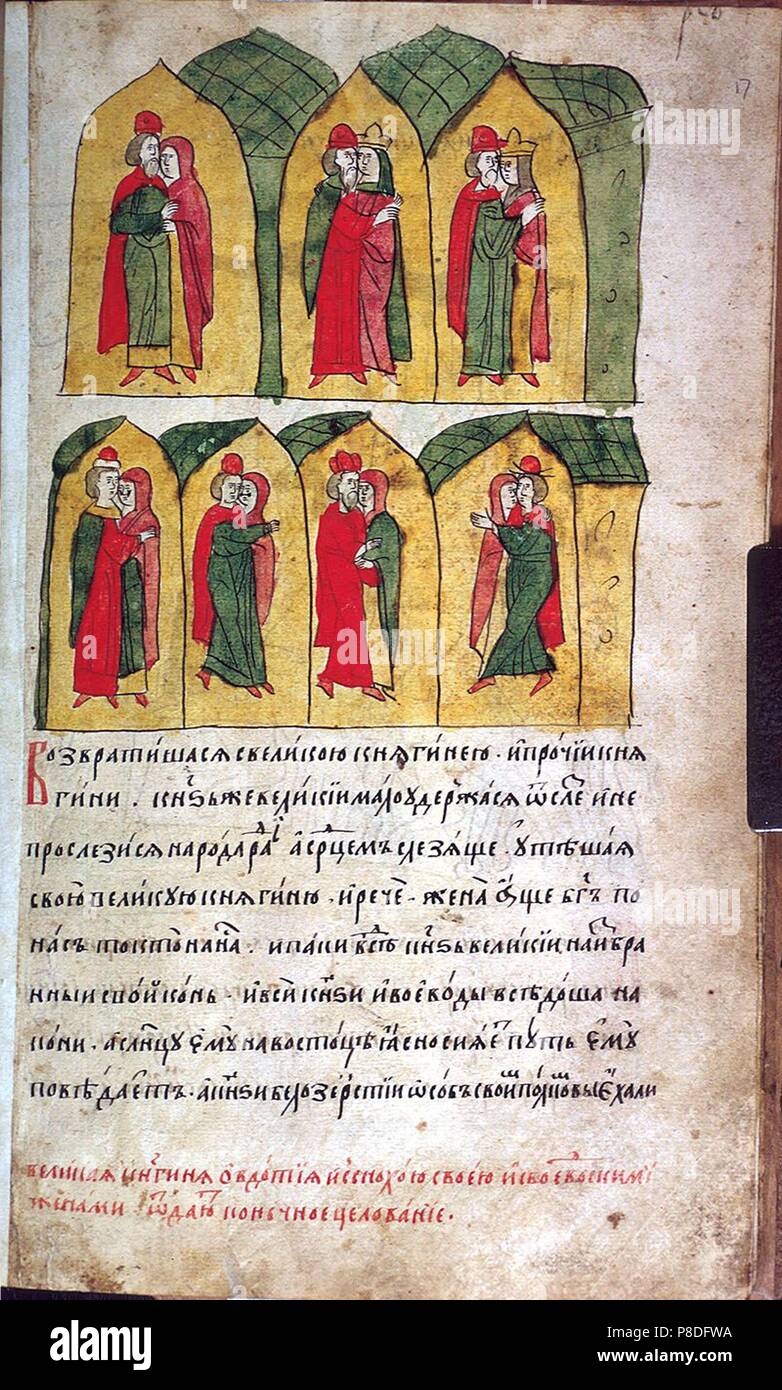 17
Возвратишася съ великою княгинею. и прочіи кня
гини. кн҃зь же великіи мало удержася ѿ слеꙁ и не
прослезися народа ради а срⷣцемъ слезяще. утѣшая
свою великую княгиню. и рече. жена аще бг҃ъ по
насъ то кто на на. и паки кн҃зь великіи на избра
нныи свои конь. и вси кн҃зи и воеводы всѣдоша на
кони. а слн҃цу ему на востоцѣ ясно сияе путь ему
повѣдаетъ. а кн҃зи белозерстіи особь своим полком выехали
великая кнгиня Овдотия и сснохою своею и своевоским
женами ѿдают конечное целованіе.
alamy
alamy
alamy
alamy
Image ID: P8DFWA
www.alamy.com